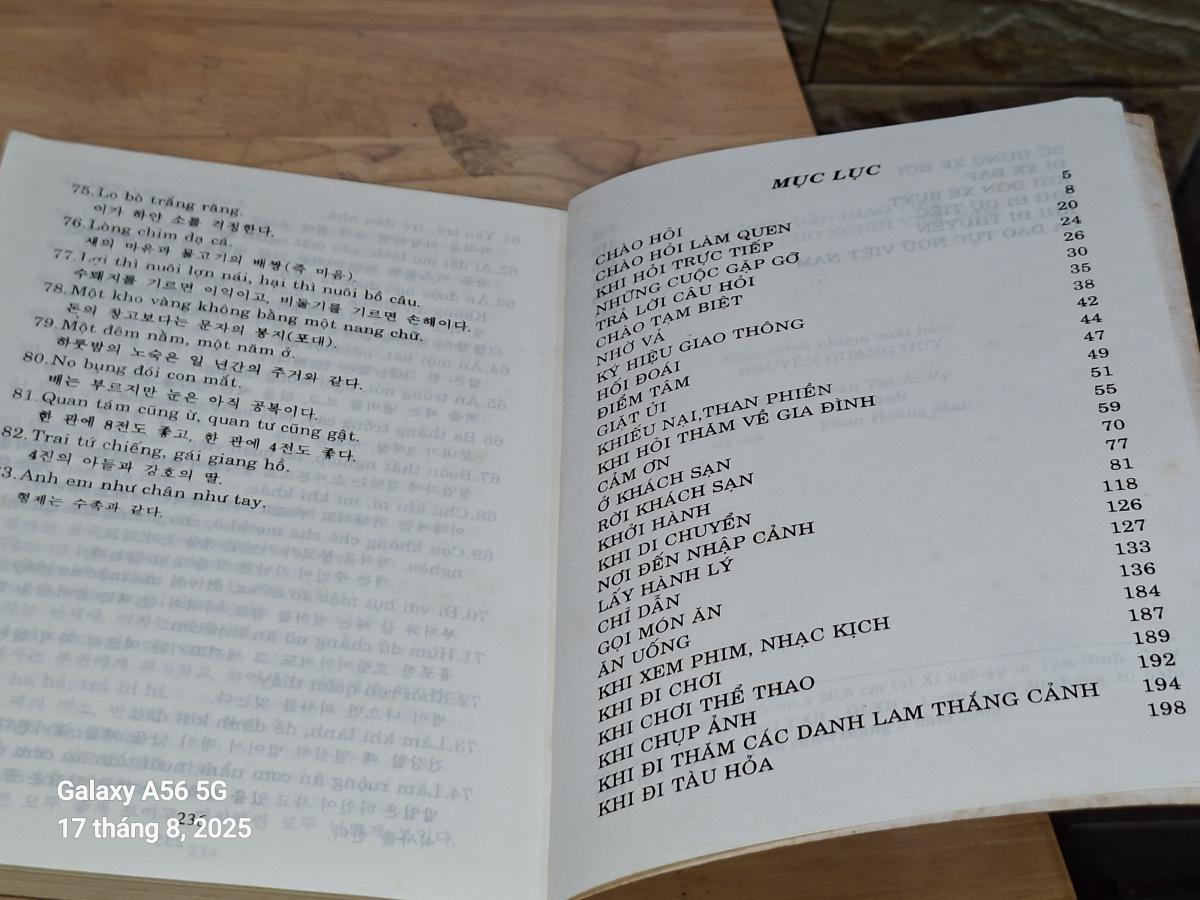 75.Lo bò trắng răng.
이가 하얀 소를 걱정한다.
76.Lòng chim dạ cá.
새의 마음과 물고기의 배짱(즉 마음)
77.Lợi thì nuôi lợn nái, hại thì nuôi bồ câu.
수퇘지를 기르면 이익이고, 비둘기를 기르면 손해이다.
78.Một kho vàng không bằng một nang chữ.
돈의 창고보다는 문자의 봉지(포대).
79.Một đêm nằm, một năm ở.
하룻밤의 노숙은 일 년간의 주거와 같다.
80.No bụng đói con mắt.
배는 부르지만 눈은 아직 공복이다.
81.Quan tám cũng ừ, quan tư cũng gật.
한 관에 8전도 좋고, 한 관에 4전도 좋다.
82.Trai tứ chiếng, gái giang hồ.
4진의 아들과 강호의 딸.
3.Anh em như chân như tay.
형제는 수족과 같다.
236
MỤC LỤC
CHÀO HỎI 5
CHÀO HỎI LÀM QUEN 8
KHI HỎI TRỰC TIẾP 20
NHỮNG CUỘC GẶP GỠ 24
TRẢ LỜI CÂU HỎI 26
CHÀO TẠM BIỆT 30
NHỜ VẢ 35
KÝ HIỆU GIAO THÔNG 38
HỐI ĐOÁI 42
ĐIỂM TÂM 44
GIẶT ỦI 47
KHIẾU NẠI,THAN PHIỀN 49
KHI HỎI THĂM VỀ GIA ĐÌNH 51
CẢM ƠN 55
Ở KHÁCH SẠN 59
RỜI KHÁCH SẠN 70
KHỞI HÀNH 77
KHI DI CHUYỂN 81
NƠI ĐẾN NHẬP CẢNH 118
LẤY HÀNH LÝ 126
CHỈ DẪN 127
GỌI MÓN ĂN 133
ĂN UỐNG 136
KHI XEM PHIM, NHẠC KỊCH 184
KHI ĐI CHƠI 187
KHI CHƠI THỂ THAO 189
KHI CHỤP ẢNH 192
KHI ĐI THĂM CÁC DANH LAM THẮNG CẢNH 194
KHI ĐI TÀU HỎA 198
Galaxy A56 5G
17 tháng 8, 2025